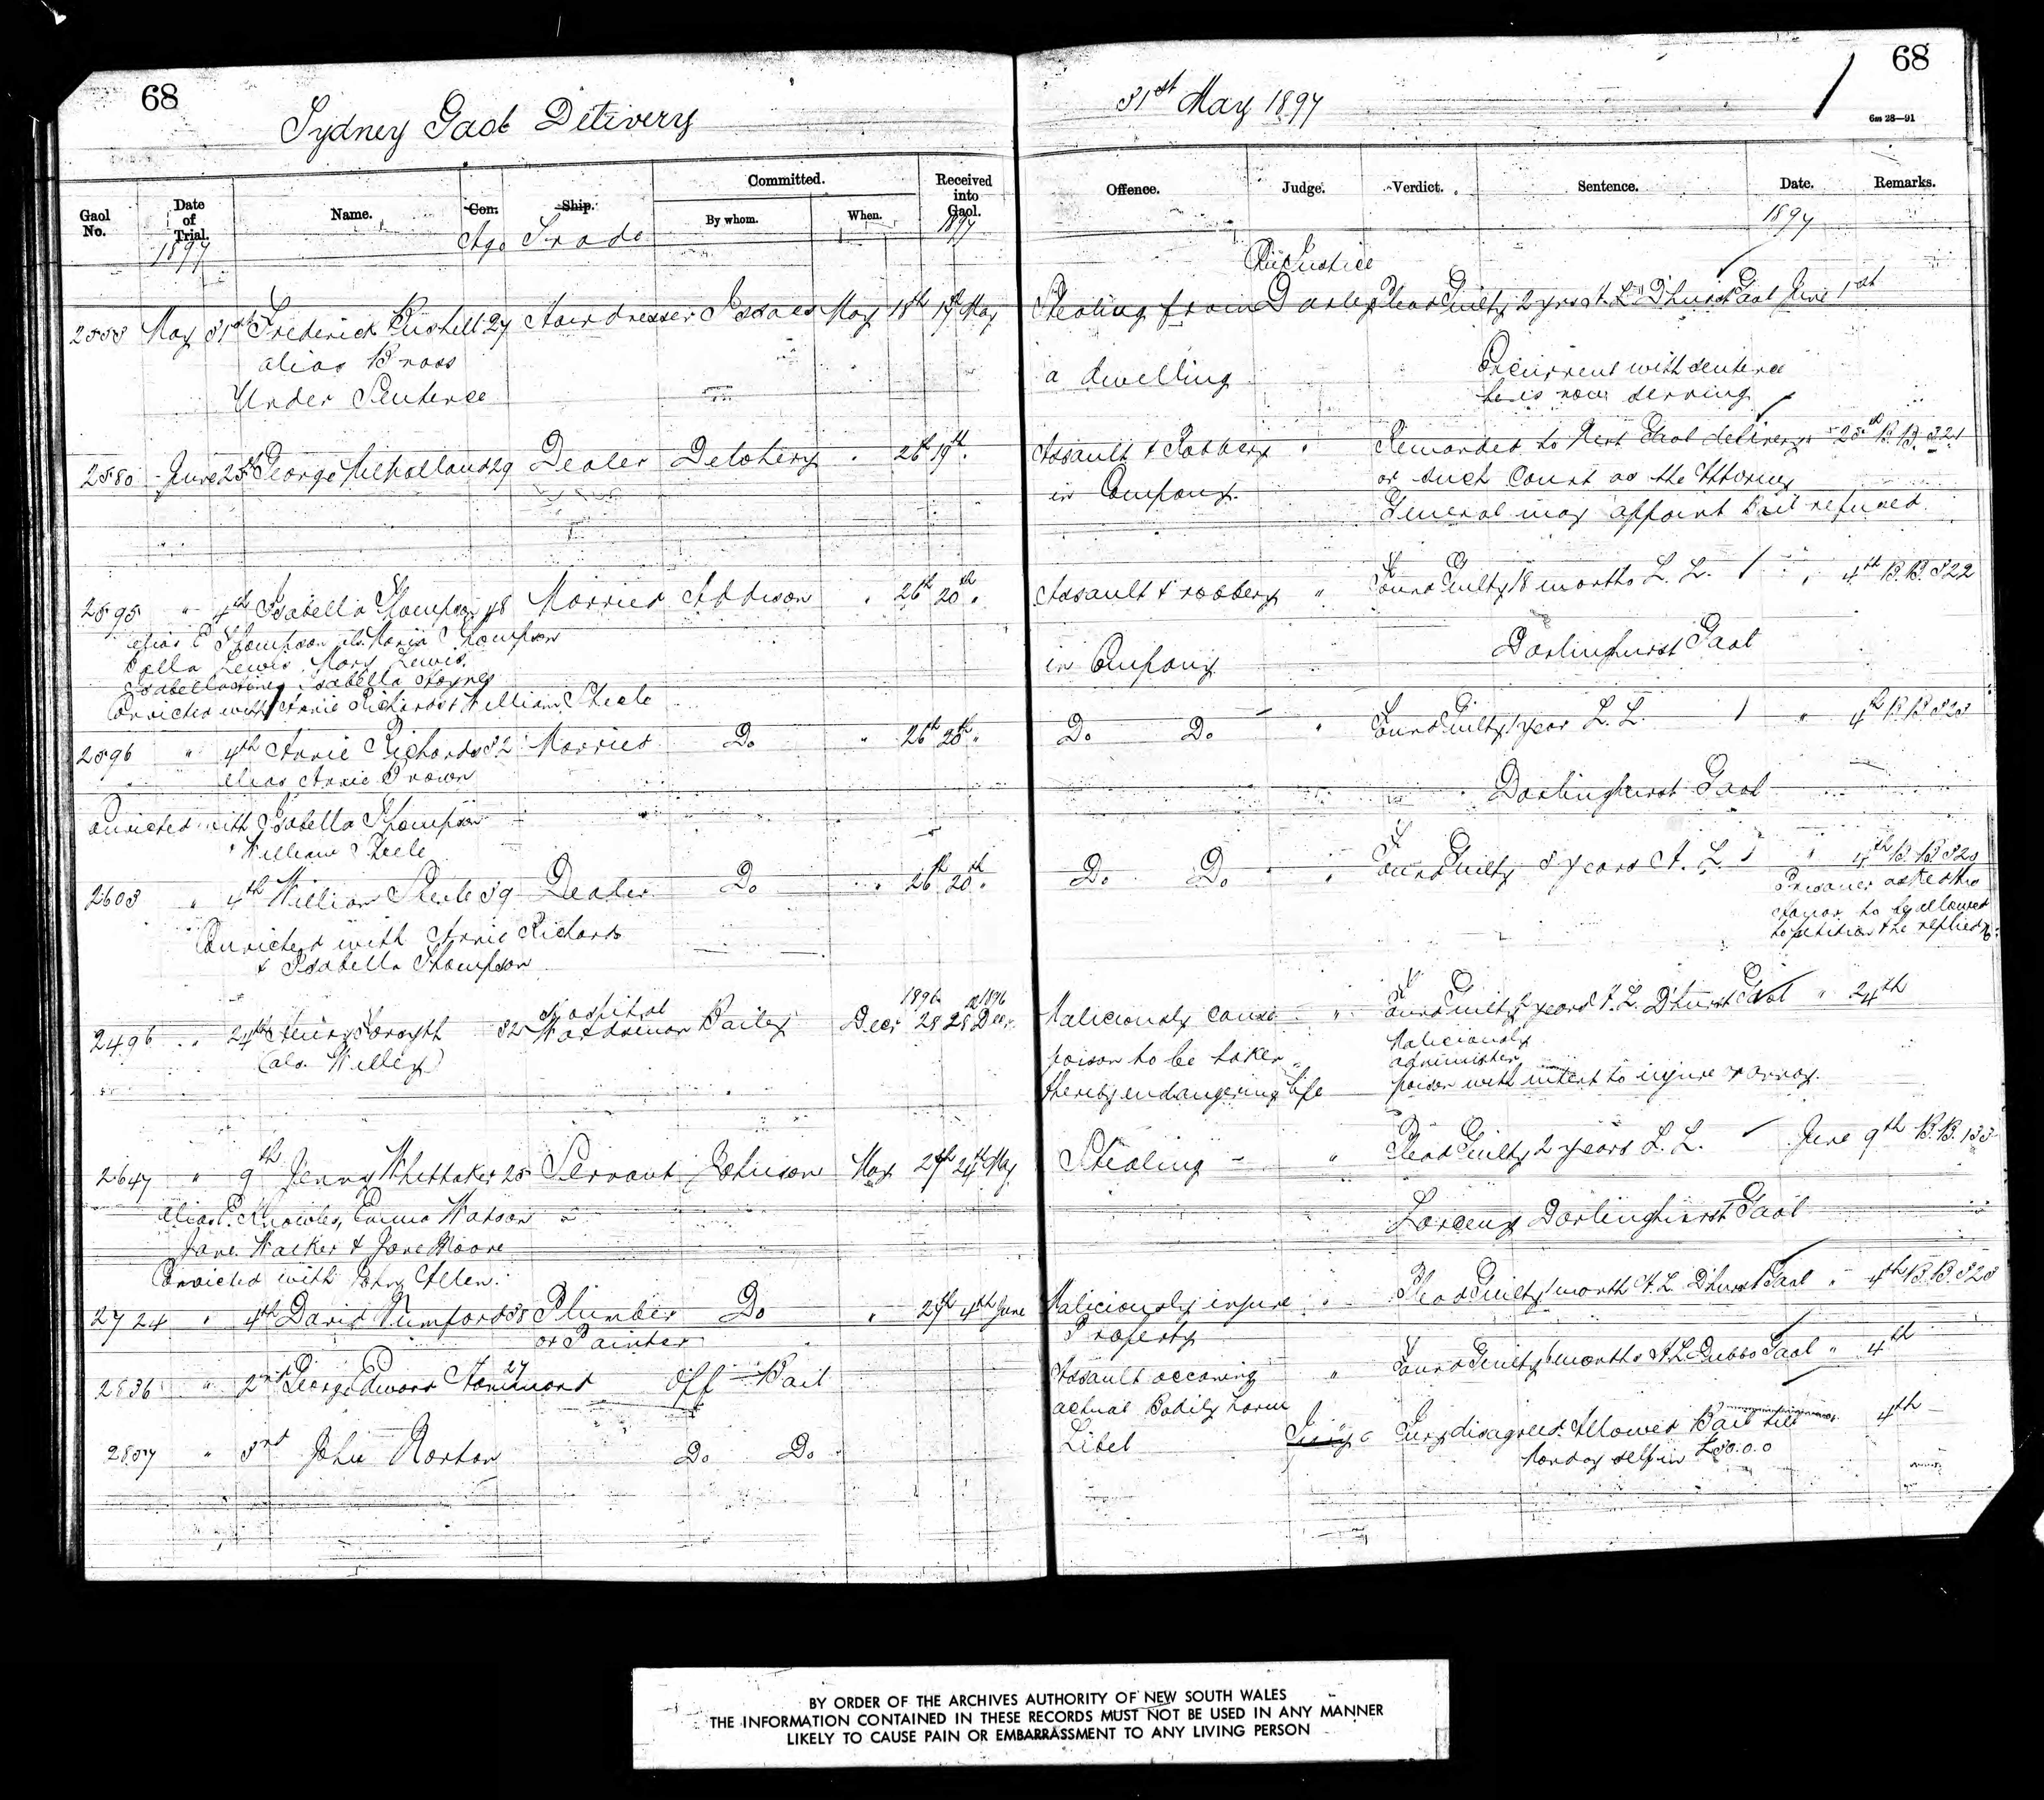 68
Sydney Gaol Delivery
31st May 1897
68
6m 28—91
Gaol No.
Date of Trial.
1897
Name.
Con.
Age
Ship.
Trade
Committed.
By whom.
When.
Received into Gaol.
1897
Offence.
Judge.
Verdict.
Sentence.
Date.
1897
Remarks.
Chief Justice
2558 May 31st Frederick 27 Hairdresser Isaacs May 18th 19th May Stealing from Darley Plead Guilty 2 yrs H. L. D'hurst Gaol June 1st
alias Bross a dwelling Concurrent with sentence
Under Sentence he is now serving
2580 June 25th George Milholland 29 Dealer Delohery " 26th 19th " Assault & Robbery " Remanded to Next Gaol delivery " 25th B.B. 321
in Company or such Court as the Attorney
General may appoint Bail refused
2595 " 4th Isabella Thompson 48 Married Addison " 26th 20th " Assault & robbery " Found Guilty 18 months L. L. " 4th B.B. 322
alias E Thompson Maria Thompson
Bella Lewis Mary Lewis in Company Darlinghurst Gaol
Isabella Isabella Haynes
Convicted with Annie Richards & William Steele
2596 " 4th Annie Richards 32 Married Do " 26th 20th " Do Do " Found Guilty 1 year L. L. " 4th B.B. 323
alias Annie Brown Darlinghurst Gaol
Convicted with Isabella Thompson
William Steele
2603 " 4th William Steele 39 Dealer Do " 26th 20th " Do Do " Found Guilty 3 years H. L. " 4th B.B. 320
Convicted with Annie Richards
& Isabella Thompson
Prisoner asked His
Honor to be allowed
to petition & he replied
2496 " 24th Henry 32 Hospital Wardsman Bailey Decr 28 1896 28 Decr 1896 Maliciously cause " Found Guilty 2 years H. L. D'hurst Gaol " 24th
(als. Willey) poison to be taken Maliciously
administer
thereby endangering life poison with intent to injure & annoy
2647 " 9th Jenny Whittaker 25 Servant Johnson May 27th 24th May Stealing " Plead Guilty 2 years L. L. June 9th B.B. 133
alias E. Knowles, Emma Watson Larceny Darlinghurst Gaol
Jane Walker & Jane Moore
Convicted with John Allen
2724 " 4th David Mumford 38 Plumber Do " 27th 4th June Maliciously injure " Plead Guilty 1 month H. L. D'hurst Gaol " 4th B.B. 323
or Painter Property
2836 " 2nd George Edward Hammond 27 Off Bail Assault occasioning " Found Guilty 6 months H L Dubbo Gaol " 4th
actual Bodily harm
2857 " 3rd John Norton Do Do Libel " Jury disagreed. Allowed Bail till 4th
Monday self in £50.0.0
BY ORDER OF THE ARCHIVES AUTHORITY OF NEW SOUTH WALES
THE INFORMATION CONTAINED IN THESE RECORDS MUST NOT BE USED IN ANY MANNER
LIKELY TO CAUSE PAIN OR EMBARRASSMENT TO ANY LIVING PERSON